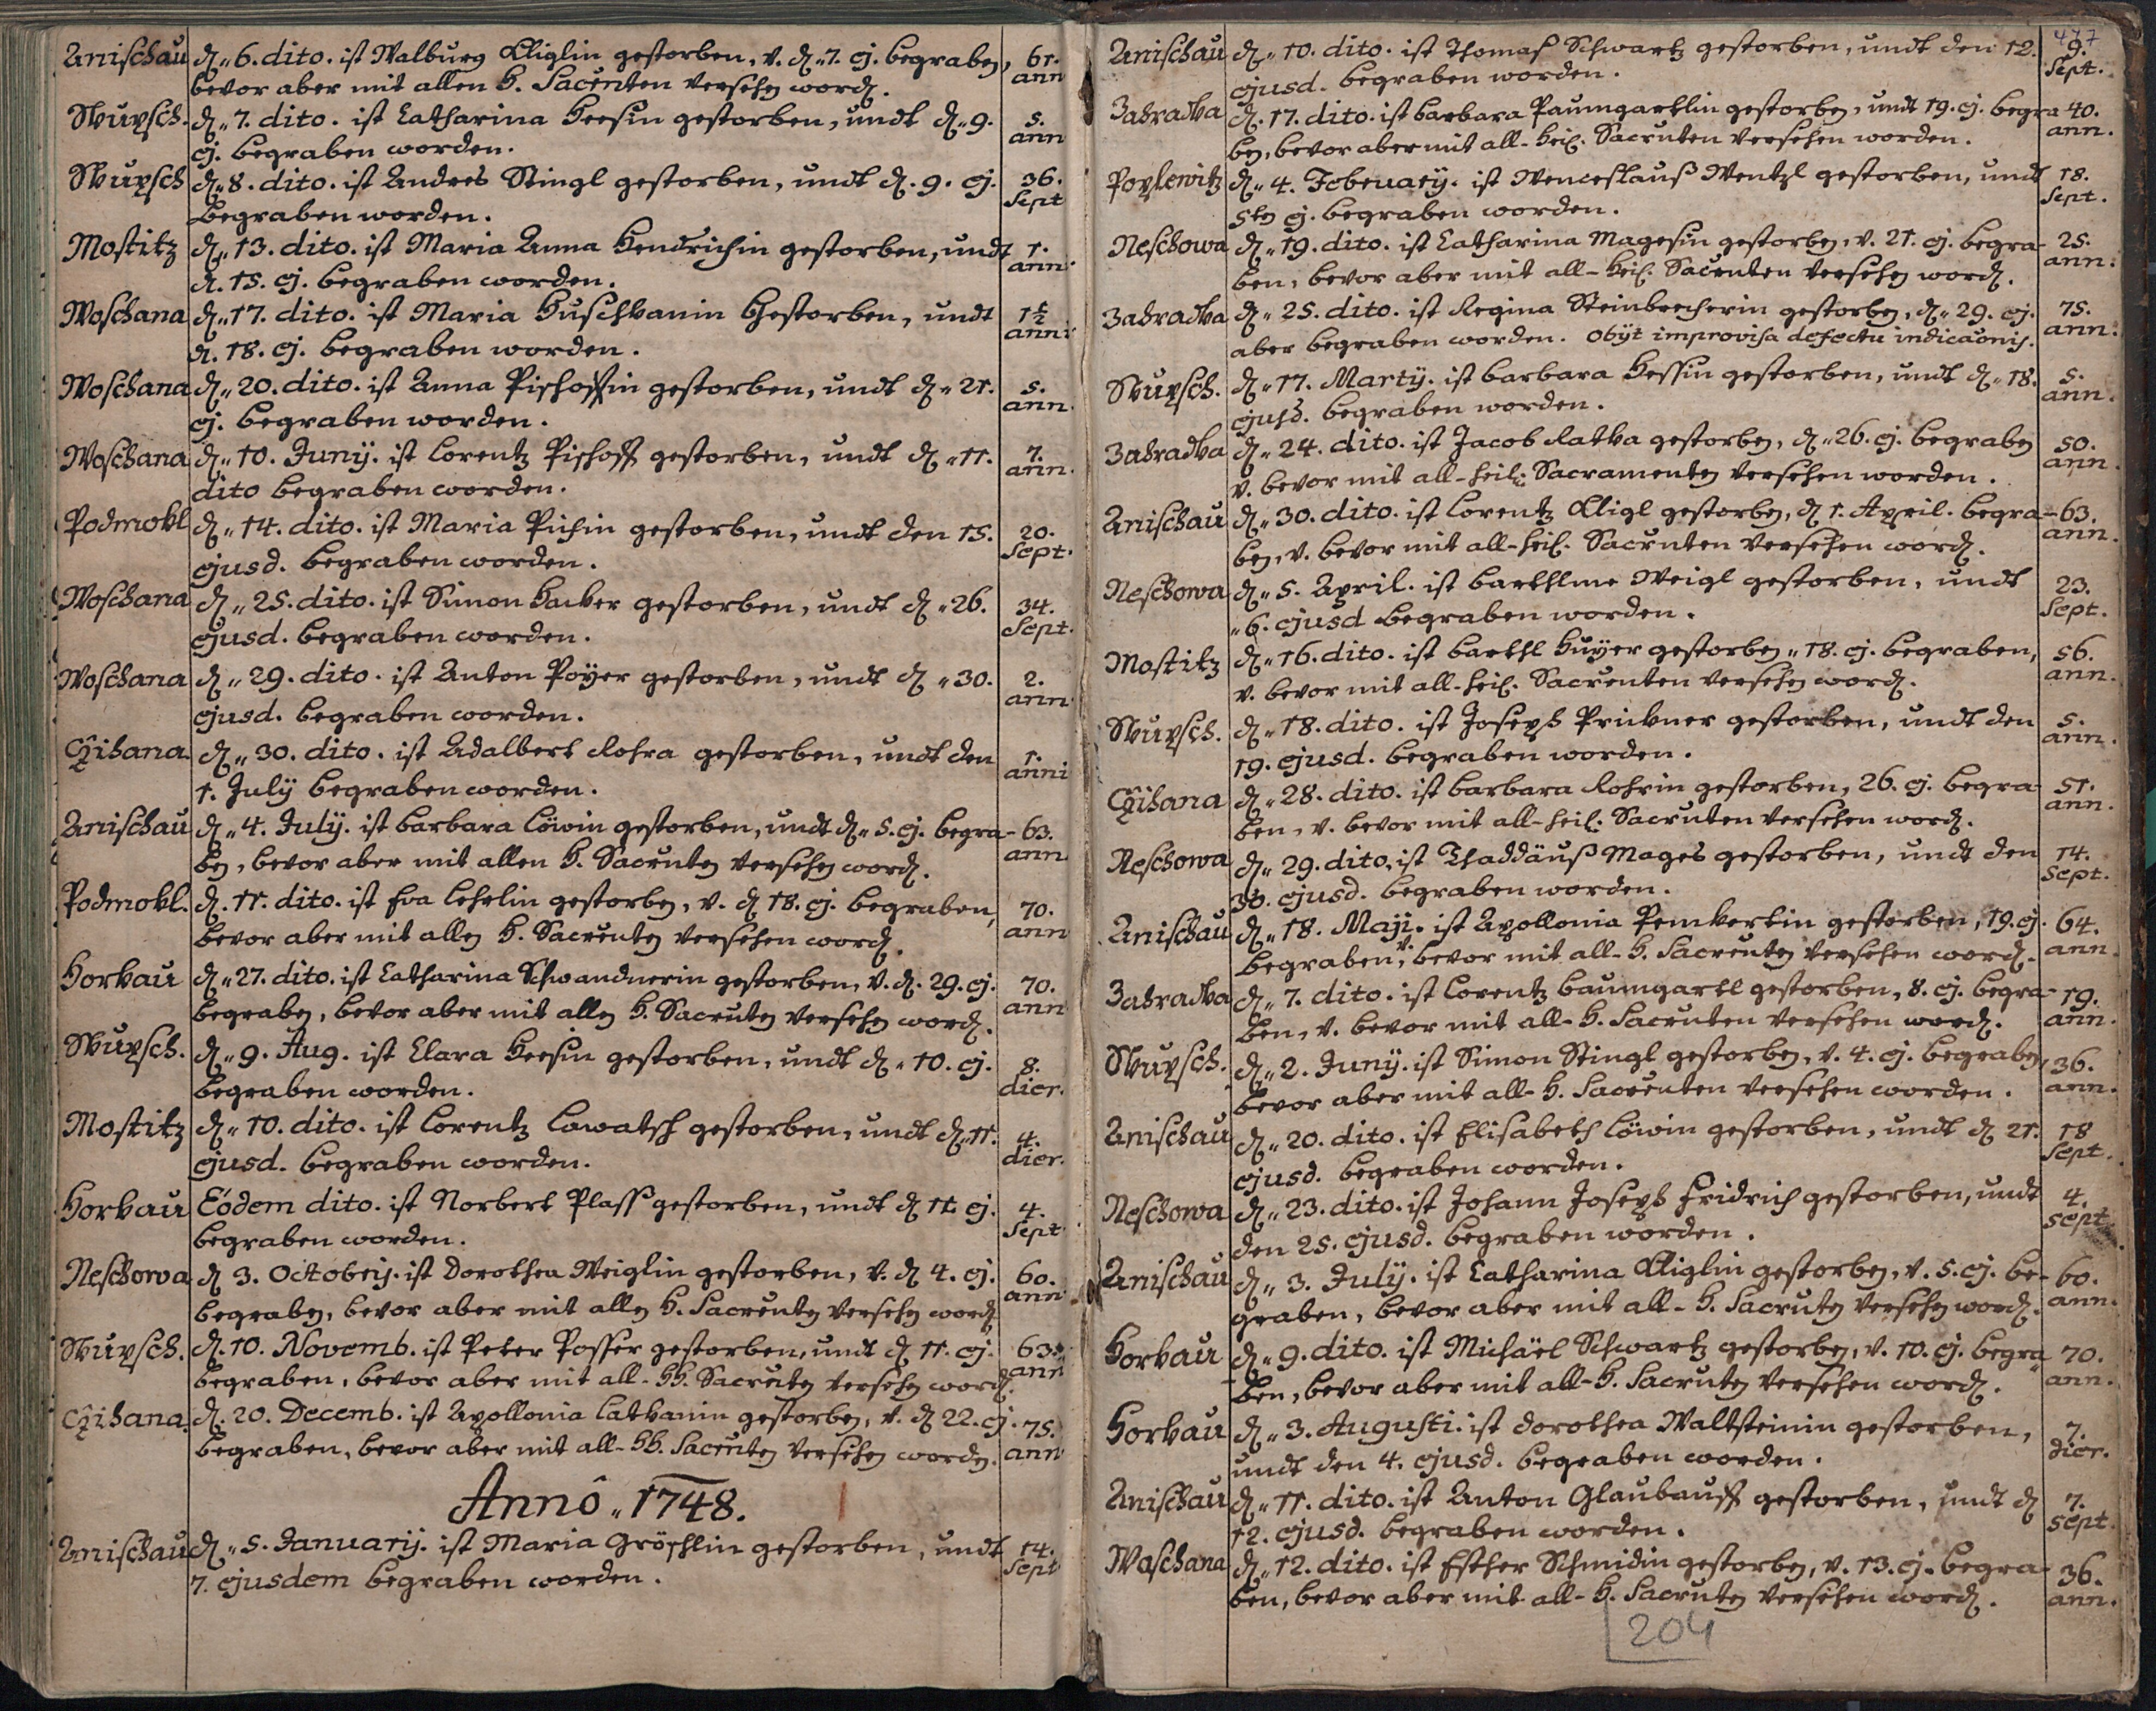 Anischau d. 6. dito. ist Walburg Kliglin gestorben, v. d. 7. ej. begraben, 61.
bevor aber mit allen H. Sacrnten versehen word. ann
Skupsch. d. 7. dito. ist Catharina Heesin gestorben, undt d. 9. 5.
ej. begraben worden. ann
Skupsch d. 8. dito. ist Andres Stingl gestorben, undt d. 9. ej. 36.
begraben worden. Sept
Mostitz d. 13. dito. ist Maria Anna Hendrichin gestorben, undt 1.
d. 15. ej. begraben worden. ann.
Woschana d. 17. dito. ist Maria Huschkanin Gestorben, undt 1½
d. 18. ej. begraben worden. anni
Woschana d. 20. dito. ist Anna Pishoffin gestorben, undt d. 21. 5.
ej. begraben worden. ann.
Woschana d. 10. Junij. ist Lorentz Pishoff gestorben, undt d. 11. 7.
dito begraben worden. ann.
Podmokl d. 14. dito. ist Maria Pichin gestorben, undt den 15. 20.
ejusd. begraben worden. Sept.
Woschana d. 25. dito. ist Simon Hacker gestorben, undt d. 26. 34.
ejusd. begraben worden. Sept.
Woschana d. 29. dito. ist Anton Poyer gestorben, undt d. 30. 2.
ejusd. begraben worden. ann.
Czihana. d. 30. dito. ist Adalbert Rohra gestorben, undt den 1.
1. July begraben worden. anni
Anischau d. 4. July. ist barbara Löwin gestorben, undt d. 5. ej. begra- 63.
ben, bevor aber mit allen H. Sacrnten versehen word. ann
Podmokl. d. 11. dito. ist Eva Lehrlin gestorben, v. d 18. ej. begraben, 70.
bevor aber mit allen H. Sacrnten versehen word. ann
Horkau d. 27. dito. ist Catharina Schwandnerin gestorben, v. d. 29. ej. 70.
begraben, bevor aber mit allen H. Sacrnten versehen word. ann
Skupsch. d. 9. Aug. ist Clara Heesin gestorben, undt d. 10. ej. 8.
begraben worden. dier.
Mostitz d. 10. dito. ist Lorentz Lawatsch gestorben, undt d. 11. 4.
ejusd. begraben worden. dier.
Horkau Eôdem dito. ist Norbert Plass gestorben, undt d 11. ej. 4.
begraben worden. Sept
Neschowa d 3. Octobrij. ist Dorothea Weiglin gestorben, v. d 4. ej. 60.
begraben, bevor aber mit allen H. Sacrnten versehen word ann
Skupsch. d. 10. Novemb. ist Peter Posser gestorben, undt d 11. ej. 63.
begraben, bevor aber mit all. HH. Sacrnten versehen word. ann
Czihana. d. 20. Decemb. ist Apollonia Latkanin gestorben, v. d 22. ej. 75.
begraben, bevor aber mit all. HH. Sacrnten versehen worden. ann
Annô 1748.
Anischau d. 5. Januarij. ist Maria Gröschlin gestorben, undt 14.
7. ejusdem begraben worden. Sept
477
Anischau d. 10. dito. ist Thomas Schwartz gestorben, undt den 12. 9.
ejusd. begraben worden. Sept.
Zahradka d. 17. dito. ist barbara Paumgarthlin gestorben, undt 19. ej. begra 40.
ben, bevor aber mit all. Heil. Sacrnten versehen worden. ann.
Poplewitz d. 4. February. ist Wenceslauß Wentzl gestorben, undt 18.
5ten ej. begraben worden. Sept.
Neschowa d. 19. dito. ist Catharina Magesin gestorben, v. 21. ej. begra- 25.
ben, bevor aber mit all. Heil. Sacrnten versehen word. ann.
Zahradka d. 25. dito. ist Regina Steinbrecherin gestorben, d. 29. ej. 75.
aber begraben worden. Obijt improvisa defectu indicaonis. ann.
Skupsch. d. 17. Martij. ist barbara Hessin gestorben, undt d. 18. 5.
ejusd. begraben worden. ann.
Zahradka d. 24. dito. ist Jacob Ratka gestorben, d. 26. ej. begraben 50.
v. bevor mit all. heil. Sacramenten versehen worden. ann.
Anischau d. 30. dito. ist Lorentz Kligl gestorben, d 1. April. begra- 63.
ben, v. bevor mit all. heil. Sacrnten versehen word. ann.
Neschowa d. 5. April. ist barthlme Weigl gestorben, undt 23.
6. ejusd begraben worden. Sept.
Mostitz d. 16. dito. ist barthl Huyer gestorben 18. ej. begraben, 56.
v. bevor mit all. heil. Sacrnten versehen word. ann.
Skupsch. d. 18. dito. ist Joseph Prickner gestorben, undt den 5.
19. ejusd. begraben worden. ann.
Czihana d. 28. dito. ist barbara Rohrin gestorben, 26. ej. begra- 51.
ben, v. bevor mit all. heil. Sacrnten versehen word. ann.
Neschowa d. 29. dito. ist Thaddäuß Mages gestorben, undt den 14.
30. ejusd. begraben worden. Sept.
Anischau d. 18. Maji. ist Apollonia Pemkertin gestorben, 19. ej. 64.
begraben, v. bevor mit all. H. Sacrnten versehen word. ann.
Zahradka d. 7. dito. ist Lorentz baumgartl gestorben, 8. ej. begra- 19.
ben, v. bevor mit all. H. Sacrnten versehen word. ann.
Skupsch. d. 2. Junij. ist Simon Stingl gestorben, v. 4. ej. begraben, 36.
bevor aber mit all. H. Sacrnten versehen worden. ann.
Anischau d. 20. dito. ist Elisabeth Löwin gestorben, undt d 21. 18
ejusd. begraben worden. Sept.
Neschowa d. 23. dito. ist Johann Joseph Fridrich gestorben, undt 4.
den 25. ejusd. begraben worden. Sept
Anischau d. 3. July. ist Catharina Kliglin gestorben, v. 5. ej. be- 60.
graben, bevor aber mit all. H. Sacrnten versehen word. ann.
Horkau d. 9. dito. ist Michäel Schwartz gestorben, v. 10. ej. begra 70.
ben, bevor aber mit all. H. Sacrnten versehen word. ann.
Horkau d. 3. Augusti. ist Dorothea Waltsteinin gestorben, 7.
undt den 4. ejusd. begraben worden. dier.
Anischau d. 11. dito. ist Anton Glaubauff gestorben, undt d 7.
12. ejusd. begraben worden. Sept.
Woschana d. 12. dito. ist Esther Schmidin gestorben, v. 13. ej. begra- 36.
ben, bevor aber mit all. H. Sacrnten versehen word. ann.
204